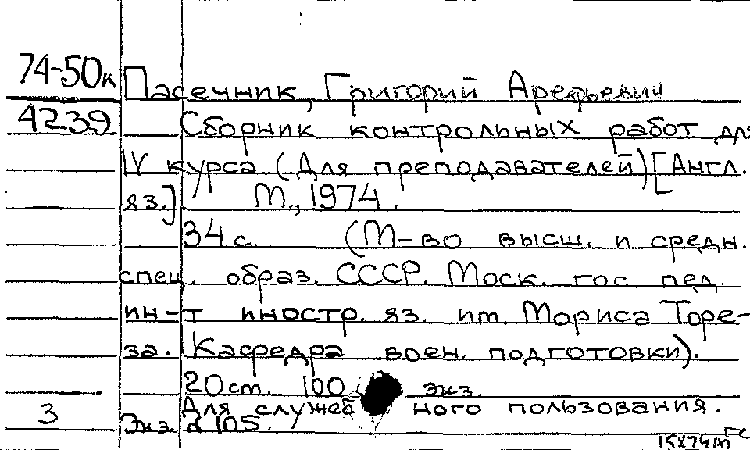 74-50к Пасечник, Григорий Арефьевич
4239 Сборник контрольных работ дл
IV курса (Для преподавателей) [Англ.
яз.] М., 1974.
34 с. (М-во высш. и средн.
спец. образ. СССР. Моск. гос пед.
ин-т иностр. яз. им. Мориса Торе-
за. (Кафедра воен. подготовки).
20 см. 100 экз.
Для служебного пользования.
3 Экз. 105.